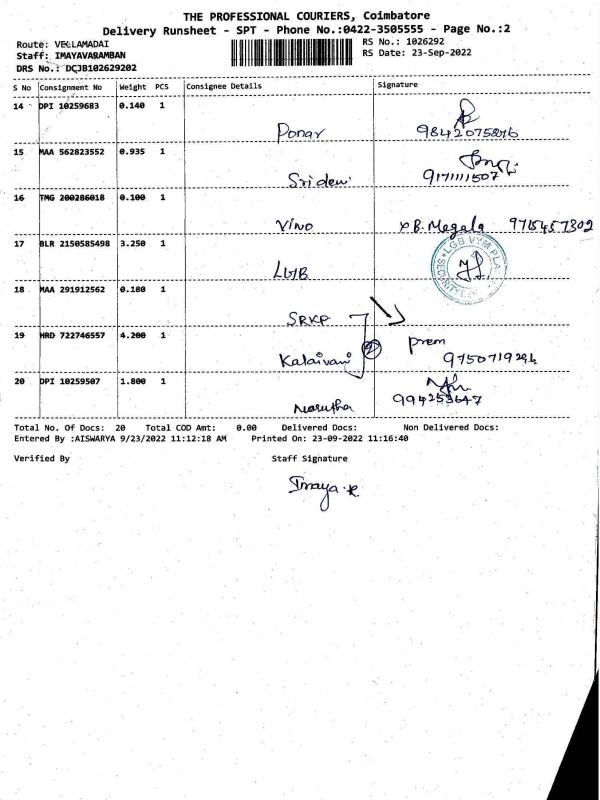 THE PROFESSIONAL COURIERS, Coimbatore
Delivery Runsheet - SPT - Phone No.:0422-3505555 - Page No.:2
Route: VELLAMADAI
RS No.: 1026292
Staff: IMAYAVARAMBAN
RS Date: 23-Sep-2022
DRS No.: DCJB102629202
S No Consignment No Weight PCS Consignee Details Signature
14 DPI 10259683 0.140 1
Ponar
15 MAA 562823552 0.935 1
Sridevi 9171111507
16 TMG 200286018 0.100 1
Vino B. Megala 9715457302
17 BLR 2150585498 3.250 1
LGB
LGB VYM PLA
SECURITY
18 MAA 291912562 0.180 1
SRKP
19 HRD 722746557 4.200 1
prem
Kalaivani 2 9750719294
20 DPI 10259507 1.800 1
Marutha 994253647
Total No. Of Docs: 20 Total COD Amt: 0.00 Delivered Docs: Non Delivered Docs:
Entered By :AISWARYA 9/23/2022 11:12:18 AM Printed On: 23-09-2022 11:16:40
Verified By Staff Signature
Imaya.R